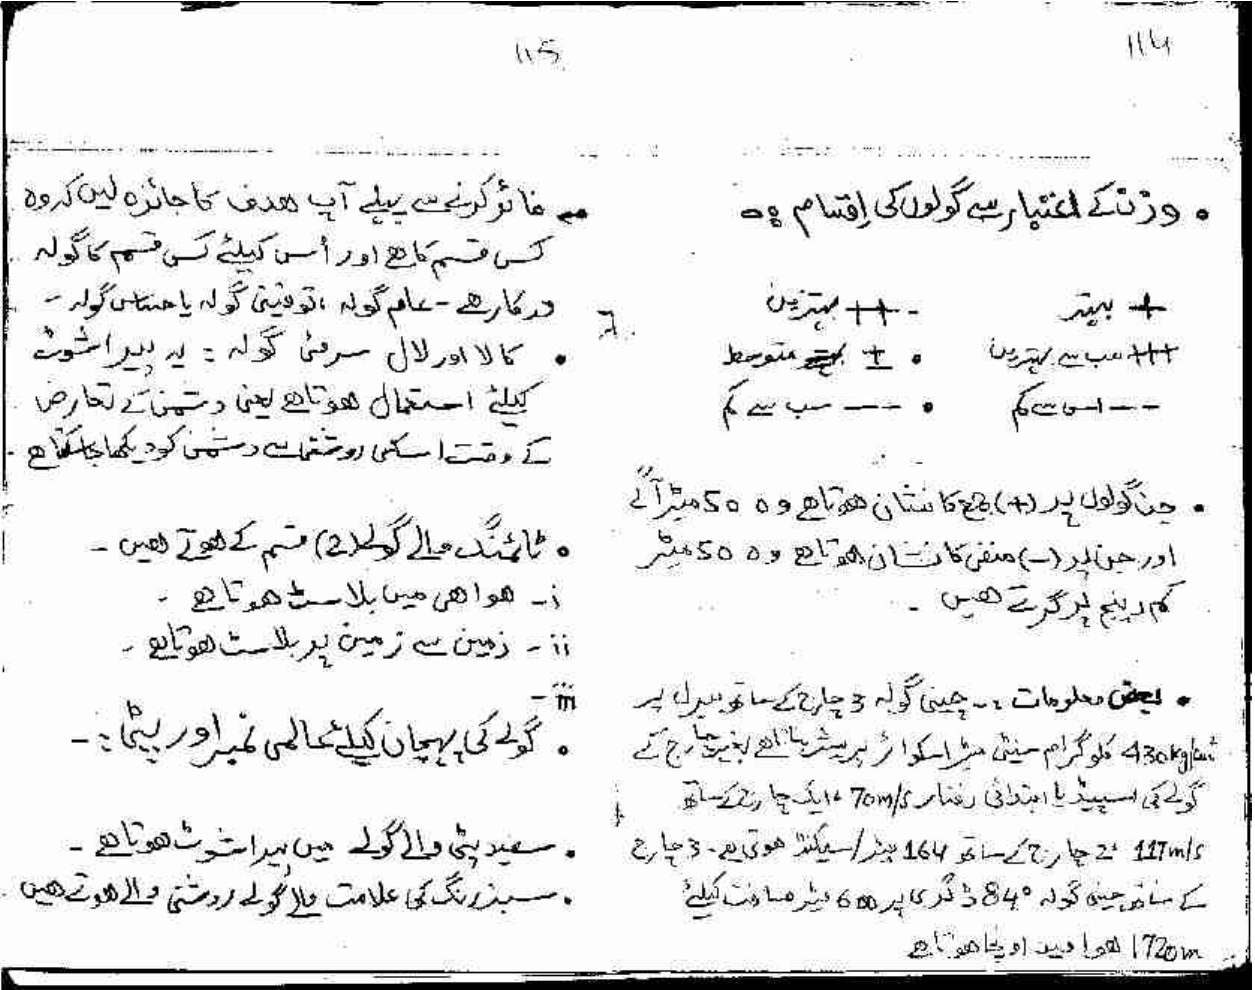 114
• وزن کے اعتبار سے گولوں کی اقسام :۔
+ بہتر
- ++ بہترین
+++ سب سے بہترین
• ± متوسط
-- اس سے کم
• --- سب سے کم
• جن گولوں پر (+) جمع کا نشان ہوتا ہے وہ 50 میٹر آگے
اور جن پر (-) منفی کا نشان ہوتا ہے وہ 50 میٹر
کم رینج پر گرتے ہیں -
• بعض معلومات :۔ چینی گولہ 3 چارج کے ساتھ بیرل پر
430kg/ کلوگرام سینٹی میٹر اسکوائر پریشر بغیر چارج کے
گولے کی اسپیڈ یا ابتدائی رفتار 70m/s ، ایک چارج کے ساتھ
117m/s 2 چارج کے ساتھ 164 میٹر/سیکنڈ ہوتی ہے - 3 چارج
کے ساتھ چینی گولہ 84° ڈگری پر 600 میٹر مسافت کیلئے
1720m ہوا میں اونچا ہوتا ہے
115
فائر کرنے سے پہلے آپ ھدف کا جائزہ لیں کہ وہ
کس قسم کا ہے اور اُس کیلئے کس قسم کا گولہ
درکار ہے - عام گولہ ، توقیتی گولہ یا حساس گولہ -
• کالا اور لال سرمئی گولہ : یہ پیراشوٹ
کیلئے استعمال ھوتا ہے یعنی دشمن کے تعارض
کے وقت اسکی روشنی سے دشمن کو دیکھا جاسکتا ہے -
• ٹائمنگ والے گولے (2) قسم کے ھوتے ھیں -
i - ھوا ھی میں بلاسٹ ھوتا ہے -
ii - زمین سے زمین پر بلاسٹ ھوتا ہے -
iii -
• گولے کی پہچان کیلئے عالمی نمبر اور پٹی :-
• سفید پٹی والے گولے میں پیراشوٹ ھوتا ہے -
• سبز رنگ کی علامت والے گولے روشنی والے ھوتے ھیں -